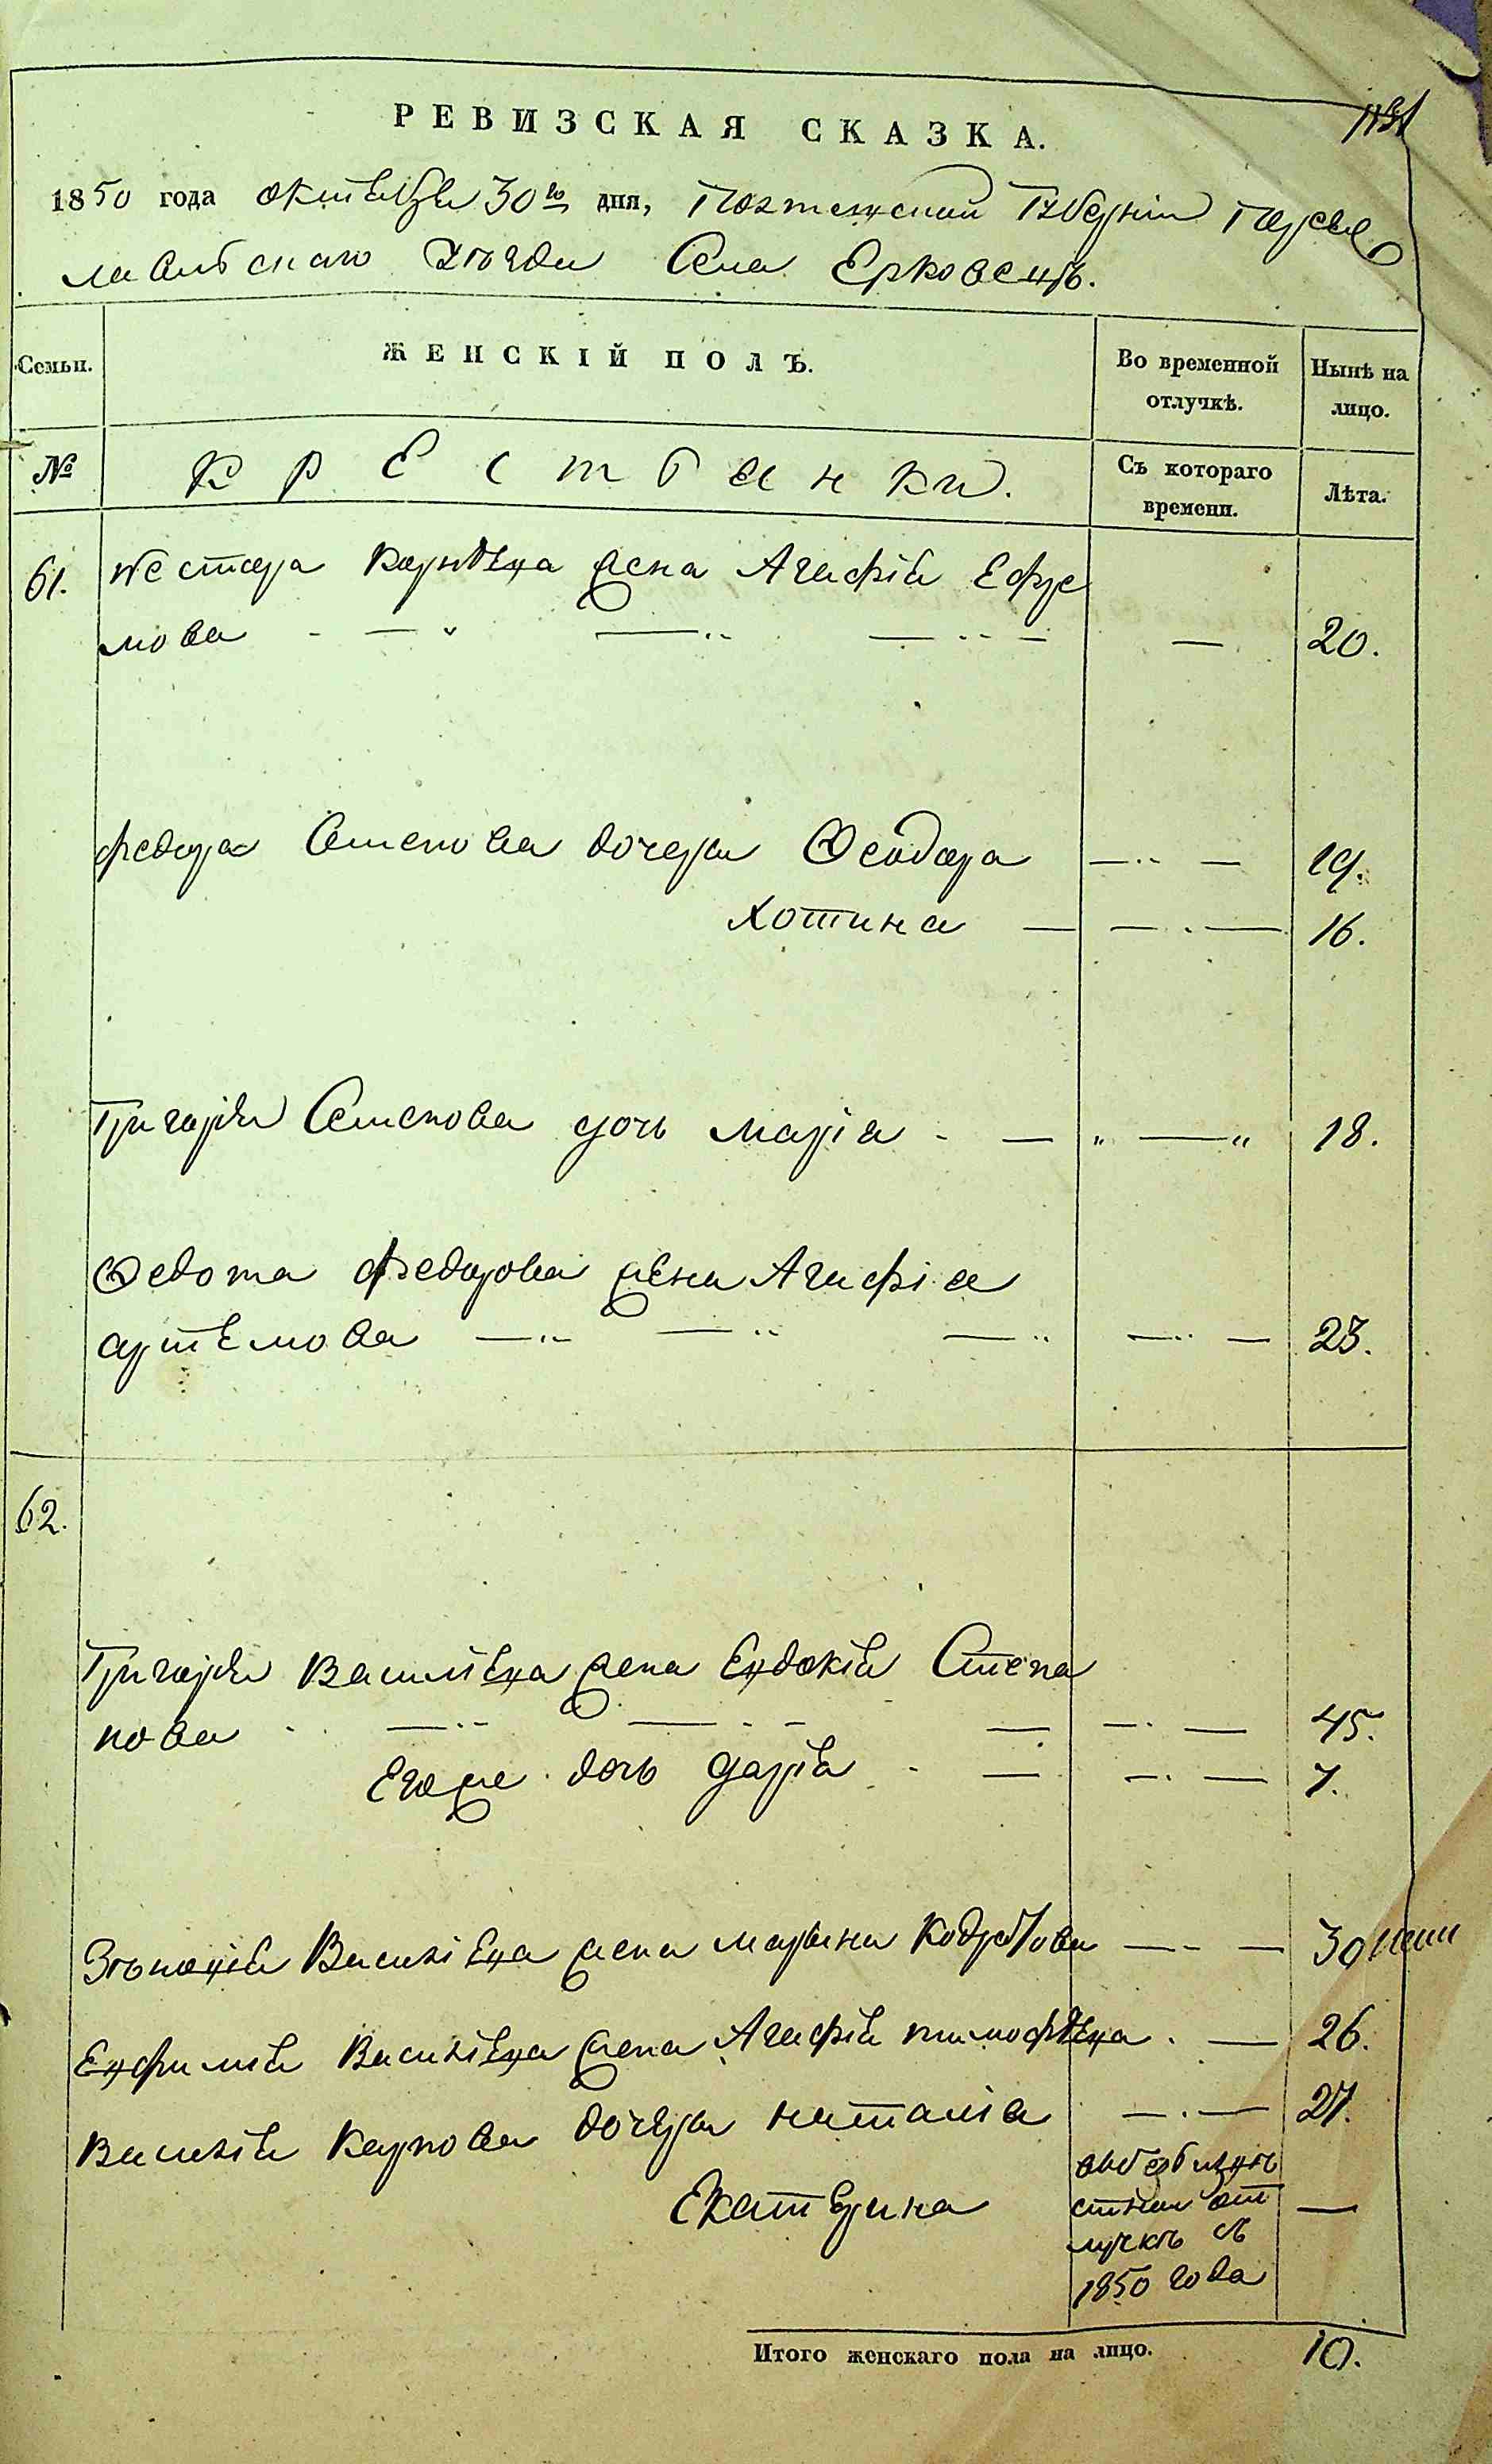 РЕВИЗСКАЯ СКАЗКА.
1850 года октебря 30го дня, Полтавской Губерніи Переяс
лавского уѣзда Села Ерковецъ.
Семьи. ЖЕНСКІЙ ПОЛЪ. Во временной отлучкѣ. Нынѣ на лицо.
№ Крестьянки. Съ котораго времени. Лѣта.
61. Нестора Карнѣева жена Агафія Ефре
мова — — — — 20.
Федора Семенова дочери Феодора — — 19.
Хотина — — — 16.
Григорія Семенова дочь Марія — — 18.
Федота Федорова жена Агафіа
артемова — — — — — 23.
62.
Григорія Василіева жена Евдокія Степа
нова — — — — — 45.
Егоже дочь Дарія — — — 7.
Василіева жена Марина — — 30
Евфимія Василіева жена Агафія тимофѣева — 26.
Василія Карпова дочери наталія — — 27.
Екатерина —
отлучкѣ съ
1850 года
Итого женскаго пола на лицо. 10.